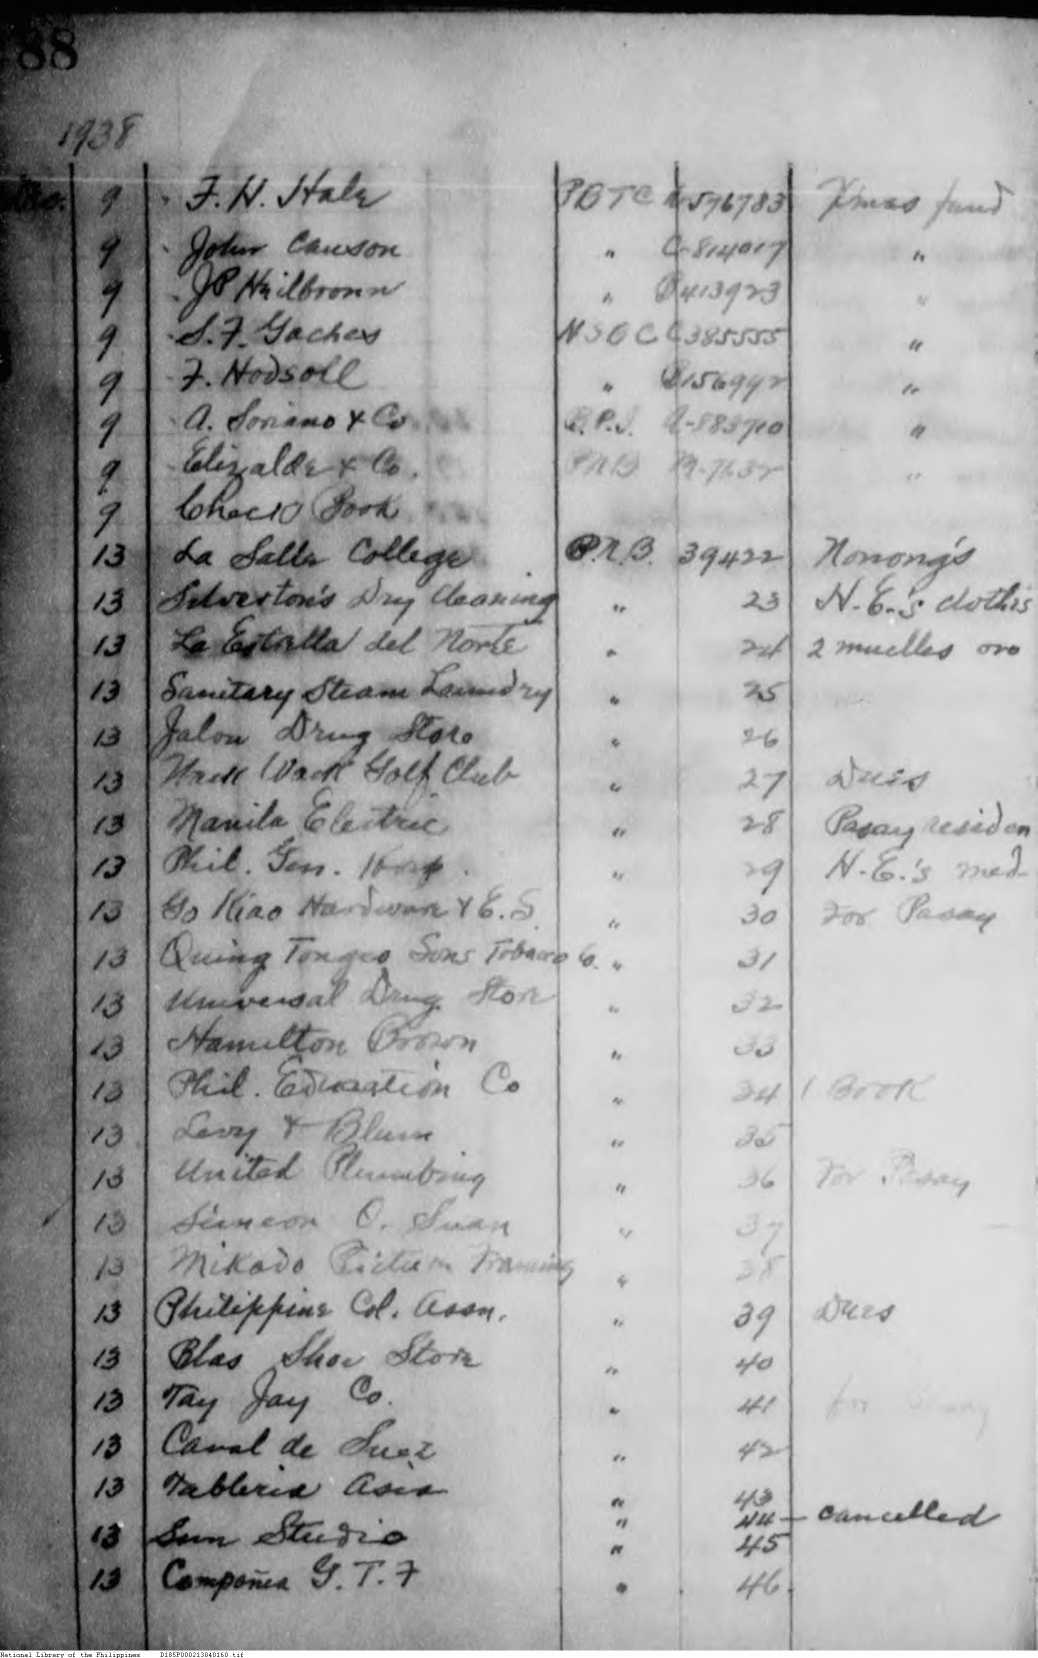 88
1938
Dec. 9 F. H. Hale PBTC 576783 Xmas fund
9 John Canson " C-814017 "
9 JP Heilbronn " B413923 "
9 S. F. Gaches NSOC C385555 "
9 F. Hodsoll " B156992 "
9 A. Soriano & Co B.P.I. A-583710 "
9 Elizalde & Co. PNB "
9 Check Book
13 La Salle College P.N.B. 39422 Nonong's
13 Silverton's Dry Cleaning " 23 N.E.'s clothes
13 La Estrella del Norte " 24 2 muelles oro
13 Sanitary Steam Laundry " 25
13 Jalon Drug Store " 26
13 Wack Wack Golf Club " 27 Dues
13 Manila Electric " 28 Pasay residen
13 Phil. Gen. Hosp. " 29 N.E.'s med-
13 Go Kiao Hardware & E.S. " 30 For Pasay
13 Quing Tongco Sons Tobacco Co. " 31
13 Universal Drug Store " 32
13 Hamilton Brown " 33
13 Phil. Education Co " 34 1 Book
13 Levy & Blum " 35
13 United Plumbing " 36 For Pasay
13 Simeon O. Suan " 37
13 Mikado Picture Framing " 38
13 Philippine Col. Assn. " 39 Dues
13 Blas Shoe Store " 40
13 Tay Jay Co. " 41 for
13 Canal de Suez " 42
13 Tableria Asia " 43
" 44 - cancelled
13 Sun Studio " 45
13 Compañia G. T. F " 46
National Library of the Philippines D185P000213040160.tif